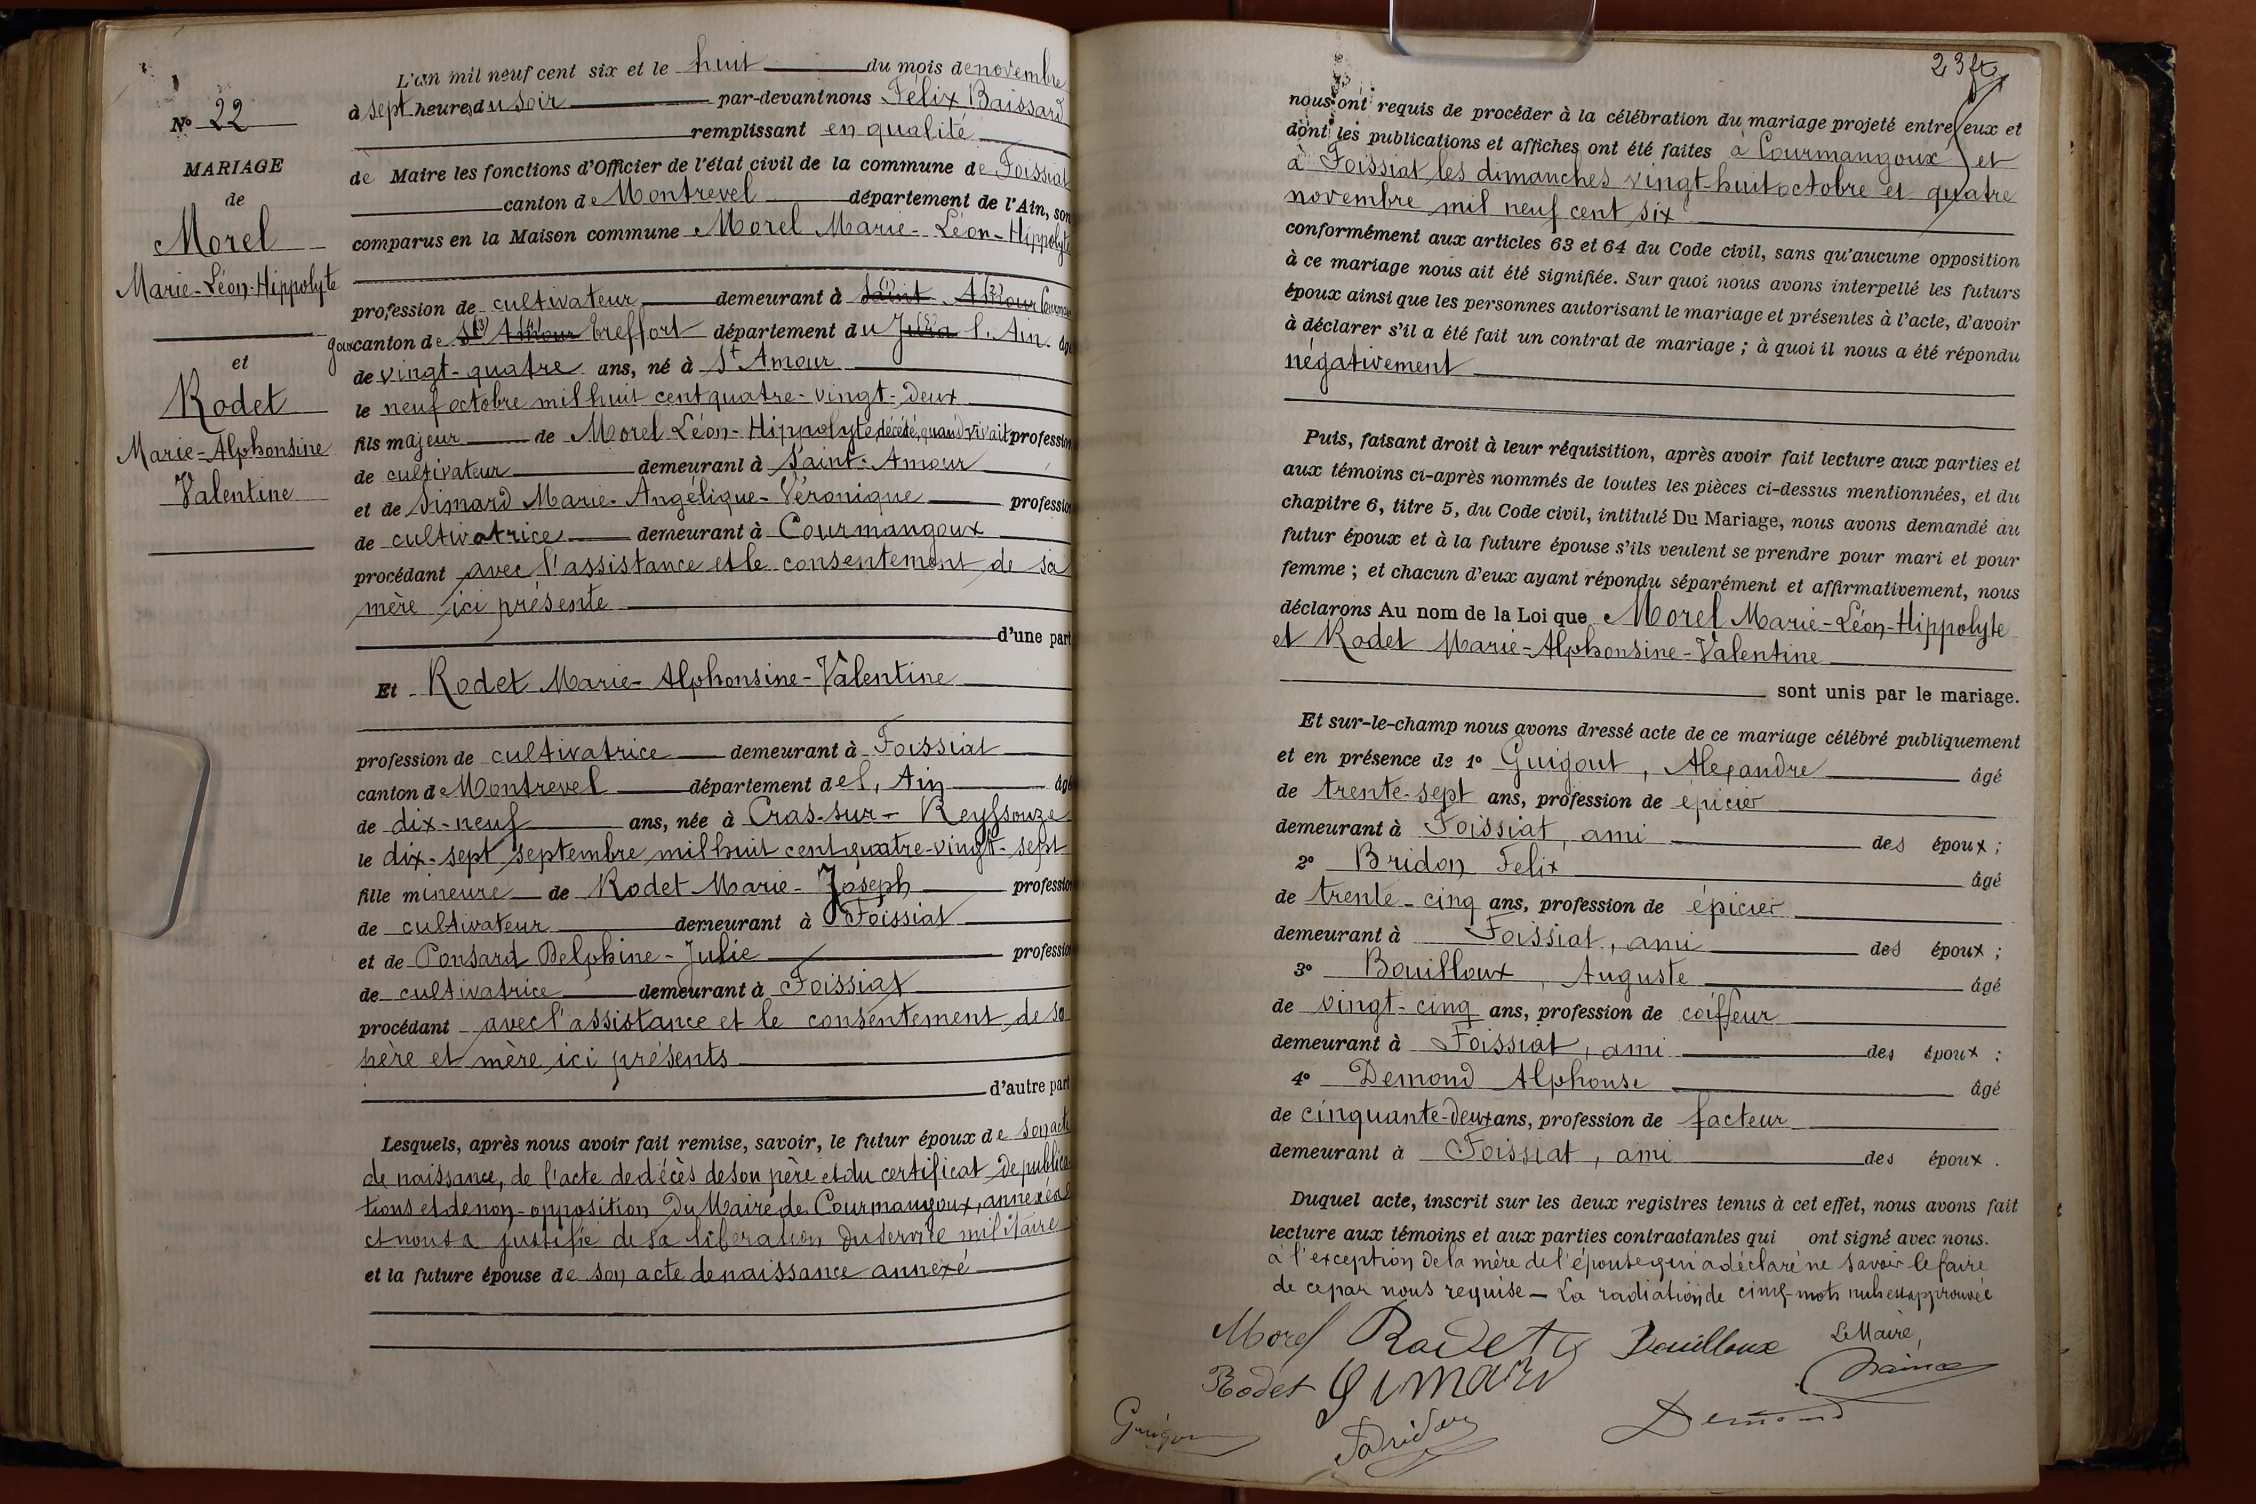 L'an mil neuf cent six et le huit du mois de novembre
à sept heures du soir par-devant nous Félix Baissard
remplissant en qualité
de Maire les fonctions d'Officier de l'état civil de la commune de Foissiat
canton de Montrevel département de l'Ain, son
comparus en la Maison commune Morel Marie-Léon-Hippolyte
profession de cultivateur demeurant à Saint Amour Courman
goux canton de St Amour Treffort département du Jura l'Ain. âgé
de vingt-quatre ans, né à St Amour
le neuf octobre mil huit cent quatre-vingt-deux
fils majeur de Morel Léon-Hippolyte, décédé, quand vivait profession
de cultivateur demeurant à Saint-Amour
et de Simard Marie-Angélique-Véronique profession
de cultivatrice demeurant à Courmangoux
procédant avec l'assistance et le consentement de sa
mère ici présente
d'une part
Et Rodet Marie-Alphonsine-Valentine
profession de cultivatrice demeurant à Foissiat
canton de Montrevel département de l'Ain âgé
de dix-neuf ans, née à Cras-sur-Reyssouze
le dix-sept septembre mil huit cent quatre-vingt-sept
fille mineure de Rodet Marie-Joseph profession
de cultivateur demeurant à Foissiat
et de Ponsard Delphine-Julie profession
de cultivatrice demeurant à Foissiat
procédant avec l'assistance et le consentement de se
père et mère ici présents
d'autre part
Lesquels, après nous avoir fait remise, savoir, le futur époux de son acte
de naissance, de l'acte de décès de son père et du certificat de publica
tions et de non-opposition du Maire de Courmangoux, annexés
et nous a justifié de sa libération du service militaire
et la future épouse de son acte de naissance annexé
N° 22
MARIAGE
de
Morel
Marie-Léon-Hippolyte
et
Rodet
Marie-Alphonsine
Valentine
23
nous ont requis de procéder à la célébration du mariage projeté entre eux et
dont les publications et affiches ont été faites à Courmangoux et
à Foissiat les dimanches vingt-huit octobre et quatre
novembre mil neuf cent six
conformément aux articles 63 et 64 du Code civil, sans qu'aucune opposition
à ce mariage nous ait été signifiée. Sur quoi nous avons interpellé les futurs
époux ainsi que les personnes autorisant le mariage et présentes à l'acte, d'avoir
à déclarer s'il a été fait un contrat de mariage ; à quoi il nous a été répondu
négativement
Puis, faisant droit à leur réquisition, après avoir fait lecture aux parties et
aux témoins ci-après nommés de toutes les pièces ci-dessus mentionnées, et du
chapitre 6, titre 5, du Code civil, intitulé Du Mariage, nous avons demandé au
futur époux et à la future épouse s'ils veulent se prendre pour mari et pour
femme ; et chacun d'eux ayant répondu séparément et affirmativement, nous
déclarons Au nom de la Loi que Morel Marie-Léon-Hippolyte
et Rodet Marie-Alphonsine-Valentine
sont unis par le mariage.
Et sur-le-champ nous avons dressé acte de ce mariage célébré publiquement
et en présence de 1° Guigout, Alexandre âgé
de trente-sept ans, profession de épicier
demeurant à Foissiat, ami des époux ;
2° Bridon Felix âgé
de trente-cinq ans, profession de épicier
demeurant à Foissiat, ami des époux ;
3° Bouilloux, Auguste âgé
de vingt-cinq ans, profession de coiffeur
demeurant à Foissiat, ami des époux ;
4° Demond Alphonse âgé
de cinquante-deux ans, profession de facteur
demeurant à Foissiat, ami des époux.
Duquel acte, inscrit sur les deux registres tenus à cet effet, nous avons fait
lecture aux témoins et aux parties contractantes qui ont signé avec nous.
à l'exception de la mère de l'épouse qui a déclaré ne savoir le faire
de ce par nous requise - La radiation de cinq mots nuls est approuvée
Morel Rodet Bouilloux Le Maire,
Rodet Simard
Demond